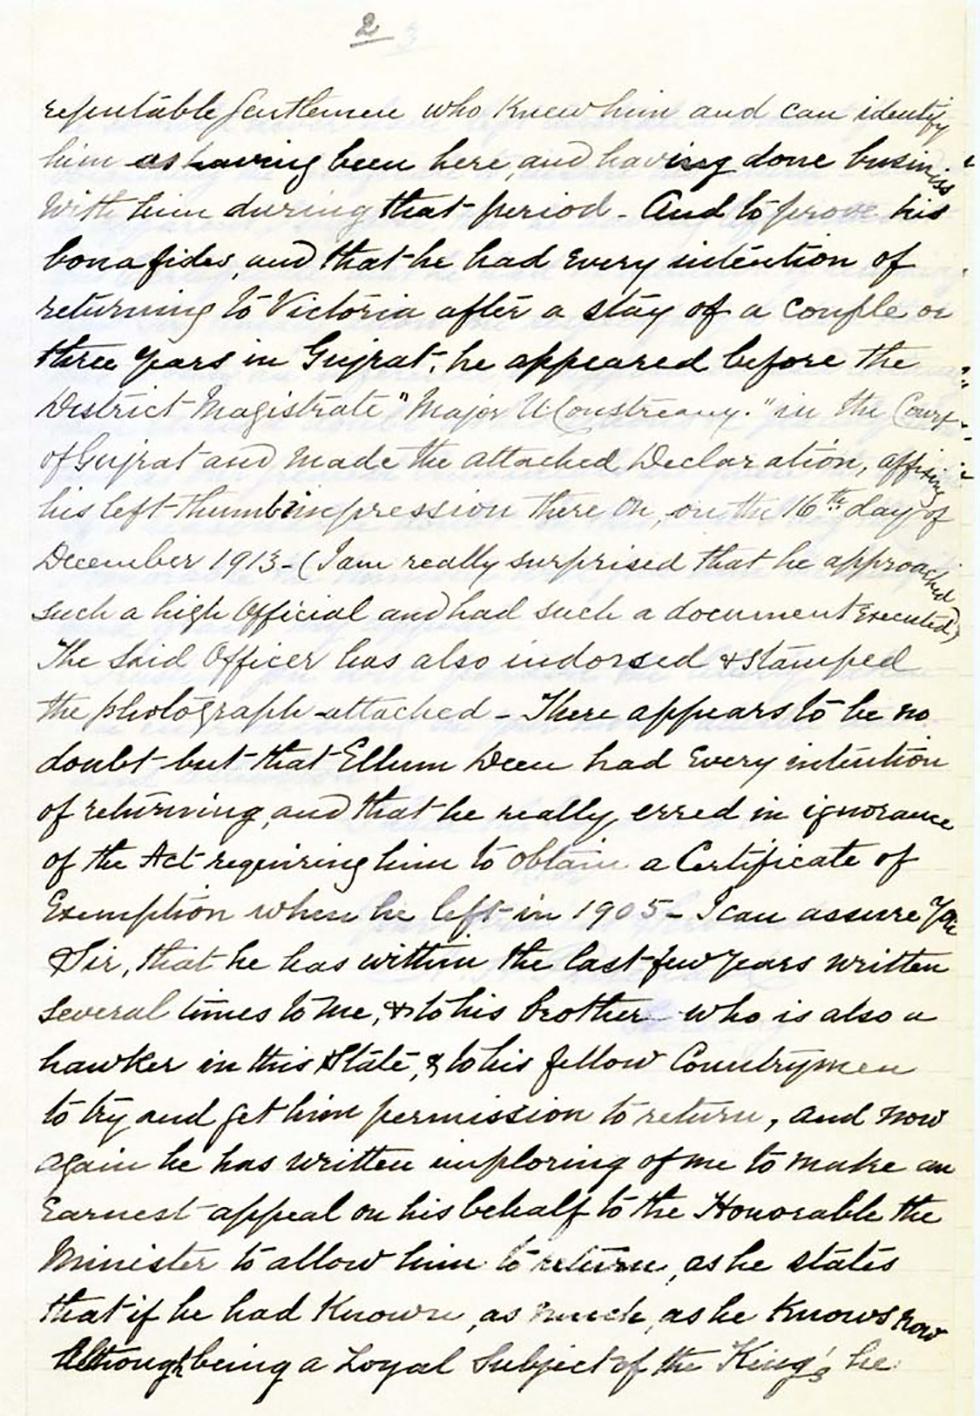 2
reputable Gentlemen who Knew him and can identify
him as having been here, and having done business
with him during that period - And to prove his
bonafides, and that he had Every intention of
returning to Victoria after a stay of a couple or
three years in Gujrat, he appeared before the
District Magistrate "Major" in the Court
of Gujrat and made the attached Declaration, affixing
his left thumb impression there on, on the 16th day of
December 1913 - (I am really surprised that he approached
such a high Official and had such a document Executed)
The Said Officer has also indorsed & stamped
the photograph attached - There appears to be no
doubt but that Ellum Deen had Every intention
of returning, and that he really erred in ignorance
of the Act requiring him to obtain a Certificate of
Exemption when he left in 1905 - I can assure You
Sir, that he has within the last few years written
several times to me, & to his brother who is also a
hawker in this State, & to his fellow Countrymen
to try and get him permission to return, and now
again he has written imploring of me to make an
Earnest appeal on his behalf to the Honorable the
Minister to allow him to return, as he states
that if he had Known, as much, as he Knows now
Although being a Loyal Subject of the King's he